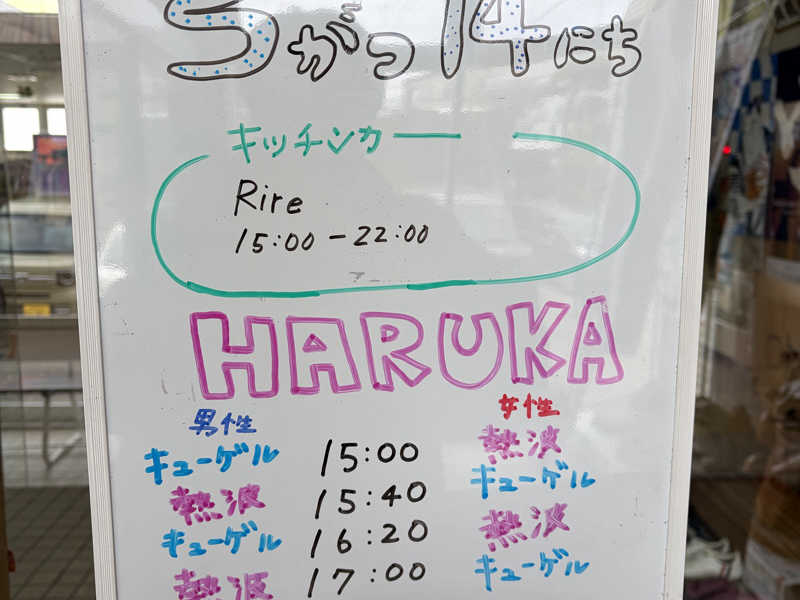 5がつ14にち
キッチンカー
Rire
15:00-22:00
HARUKA
男性 女性
キューゲル 15:00 熱波
熱波 15:40 キューゲル
キューゲル 16:20 熱波
熱波 17:00 キューゲル